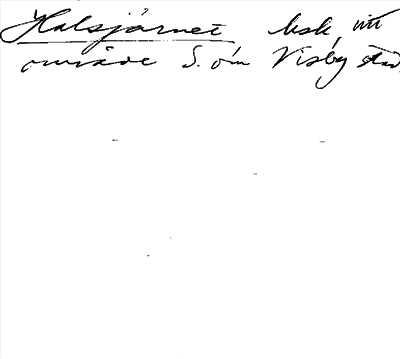 Halsjärnet besk, till
område S. om Visby stad.